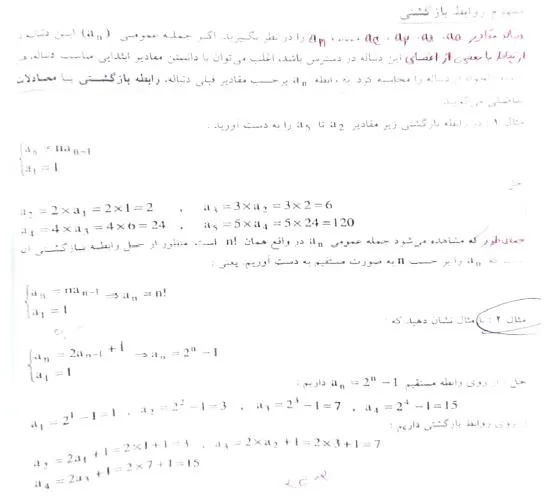 مفهوم روابط بازگشتی
دنباله مقادیر a₀، a₁، a₂، را در نظر بگیرید. اگر جمله عمومی (aₙ) این دنباله
ارتباط با بعضی از اعضای این دنباله در دسترس باشد، اغلب می‌توان با دانستن مقادیر ابتدایی مناسب دنباله،
دنباله را محاسبه کرد. به رابطه aₙ برحسب مقادیر قبلی دنباله، رابطه بازگشتی یا معادلات
تفاضلی می‌گویند.
مثال ۱: در رابطه بازگشتی زیر مقادیر a₂ تا a₅ را به دست آورید:
aₙ = naₙ₋₁
a₁ = 1
حل
a₂ = 2×a₁ = 2×1 = 2 , a₃ = 3×a₂ = 3×2 = 6
a₄ = 4×a₃ = 4×6 = 24 , a₅ = 5×a₄ = 5×24 = 120
همان‌طور که مشاهده می‌شود جمله عمومی aₙ در واقع همان n! است. منظور از حل رابطه بازگشتی آن
است که aₙ را بر حسب n به صورت مستقیم به دست آوریم. یعنی:
aₙ = naₙ₋₁ ⇒ aₙ = n!
a₁ = 1
مثال ۲: با مثال نشان دهید که:
aₙ = 2aₙ₋₁ + 1 ⇒ aₙ = 2ⁿ − 1
a₁ = 1
حل: از روی رابطه مستقیم aₙ = 2ⁿ − 1 داریم:
a₁ = 2¹ − 1 = 1 , a₂ = 2² − 1 = 3 , a₃ = 2³ − 1 = 7 , a₄ = 2⁴ − 1 = 15
از روی روابط بازگشتی داریم:
a₂ = 2a₁ + 1 = 2×1+1 = 3 , a₃ = 2×a₂ + 1 = 2×3+1 = 7
a₄ = 2a₃ + 1 = 2×7+1 = 15